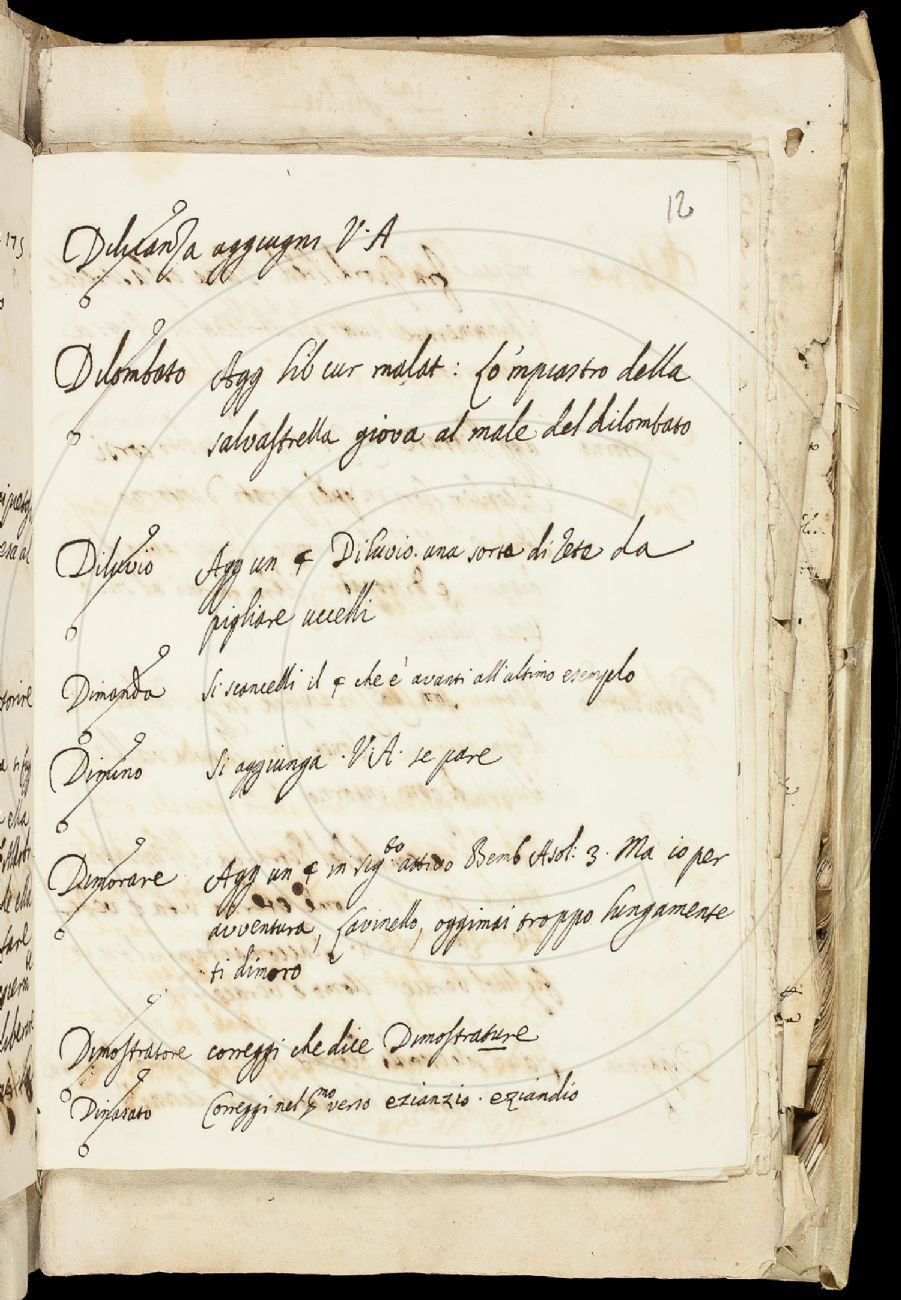 12
Dilicanza aggiugni V. A
Dilombato Agg lib cur malat: Lo 'mpiastro della
salvastrella giova al male del dilombato
Diluvio Agg un ¢ Diluvio. una sorta di rete da
pigliare uccelli
Dimanda Si scancelli il ¢ che è avanti all'ultimo esemplo
Dimino Si aggiunga . V. A. se pare
Dimorare Agg un ¢ in sig.to attivo Bemb Asol. 3. Ma io per
avventura, Lavinello, oggimai troppo lungamente
ti dimoro
Dimostratore correggi che dice Dimostrature
Correggi nel verso ezianzio . eziandio